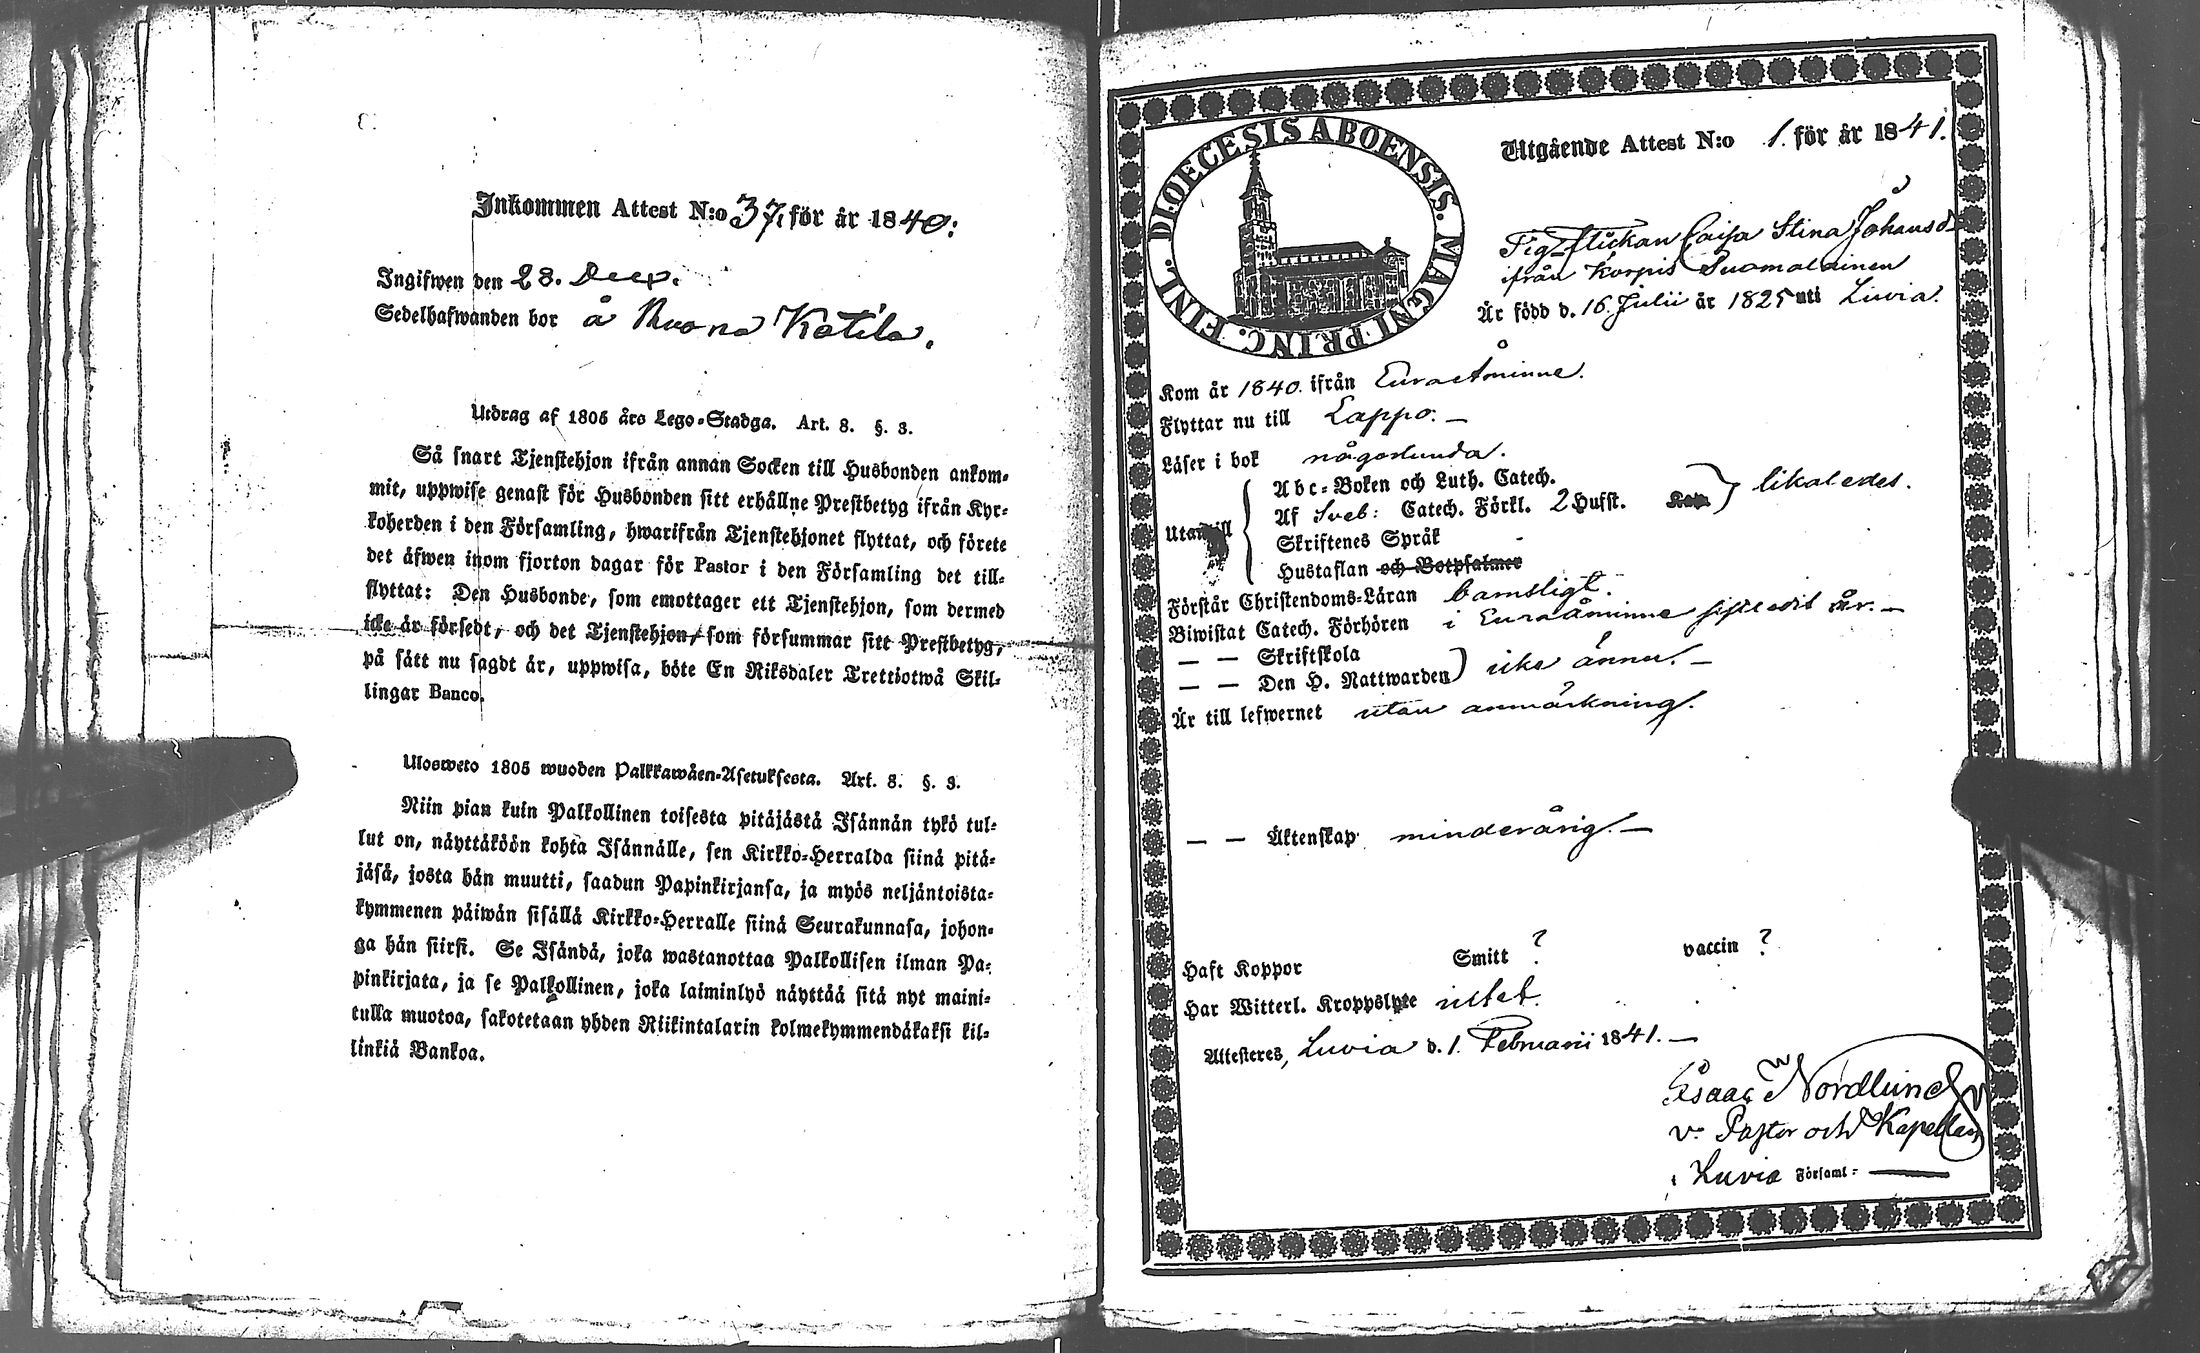 Inkommen Attest N:o 37. för år 1840:
Ingifwen den 28. Decep.
Sedelhafwanden bor å Ruona Katila.
Utdrag af 1805 års Lego-Stadga. Art. 8. §. 3.
Så snart Tjenstehjon ifrån annan Socken till Husbonden ankom-
mit, uppwise genast för Husbonden sitt erhållne Prestbetyg ifrån Kyr-
koherden i den Församling, hwarifrån Tjenstehjonet flyttat, och förete
det äfwen inom fjorton dagar för Pastor i den Församling det till-
flyttat: Den Husbonde, som emottager ett Tjenstehjon, som dermed
icke är försedt, och det Tjenstehjon, som försummar sitt Prestbetyg,
på sätt nu sagdt är, uppwisa, böte En Riksdaler Trettiotwå Skil-
lingar Banco.
Ulosweto 1805 wuoden Palkkawäen-Asetuksesta. Art. 8. §. 3.
Niin pian kuin Palkollinen toisesta pitäjästä Isännän tykö tul-
lut on, näyttäköön kohta Isännälle, sen Kirkko-Herralda siinä pitä-
jäsä, josta hän muutti, saadun Papinkirjansa, ja myös neljäntoista-
kymmenen päiwän sisällä Kirkko-Herralle siinä Seurakunnasa, johon-
ga hän siirsi. Se Isändä, joka wastanottaa Palkollisen ilman Pa-
pinkirjata, ja se Palkollinen, joka laiminlyö näyttää sitä nyt maini-
tulla muotoa, sakotetaan yhden Riikintalarin kolmekymmendäkaksi kil-
linkiä Bankoa.
DIOECESIS ABOENSIS. MAGNI PRINC. FINL.
Utgående Attest N:o 1. för år 1841.
Tig. flickan Caisa Stina Johansd
ifrån Korpis Suomalainen
Är född d. 16 Julii år 1825 uti Luvia.
Kom år 1840. ifrån Euraåminne.
Flyttar nu till Lappo. –
Läser i bok någorlunda.
Abc-Boken och Luth. Catech.
Af Sveb: Catech. Förkl. 2 Hufst. Kap. likaledes.
Utantill
Skriftenes Språk
Hustaflan och Botpsalmer
Förstår Christendoms-Läran barnsligt.
Biwistat Catech. Förhören i Euraåminne sistledit år. –
— — Skriftskola
— — Den H. Nattwarden icke ännu. –
Är till lefwernet utan anmärkning.
— — Äktenskap minderårig. –
Haft Koppor Smitt ? vaccin ?
Har Witterl. Kroppslyte intet.
Attesteres, Luvia d. 1. Februarii 1841. –
Isaac Nordlund
v. Pastor och Kapellan
i Luvia Församl: